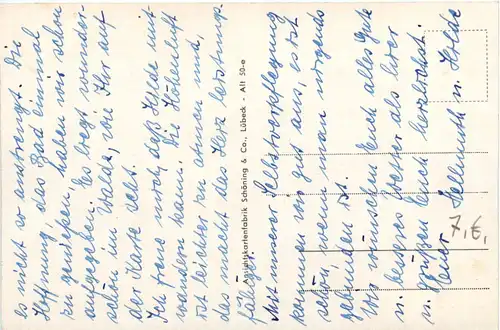 es nicht so anstrengt. Die
Hoffnung, das Bad einmal
zu genießen, haben wir schon
aufgegeben. Es liegt wunder-
schön im Walde, wie Ihr auf
der Karte seht.
Ich freue mich, daß Hilde mit-
wandern kann. Die Höhenluft
ist leichter zu atmen und,
das macht das Herz leistungs-
fähiger.
Mit unserer Selbstverpflegung
kommen wir gut aus, es ist
schön, wenn man nirgends
gebunden ist.
Wir wünschen Euch alles Gute
u. besseres Wetter als hier
u. grüßen Euch herzlichst.
Hellmuth u. Hilde
Ansichtskartenfabrik Schöning & Co., Lübeck - Alt 50-e
7,€,